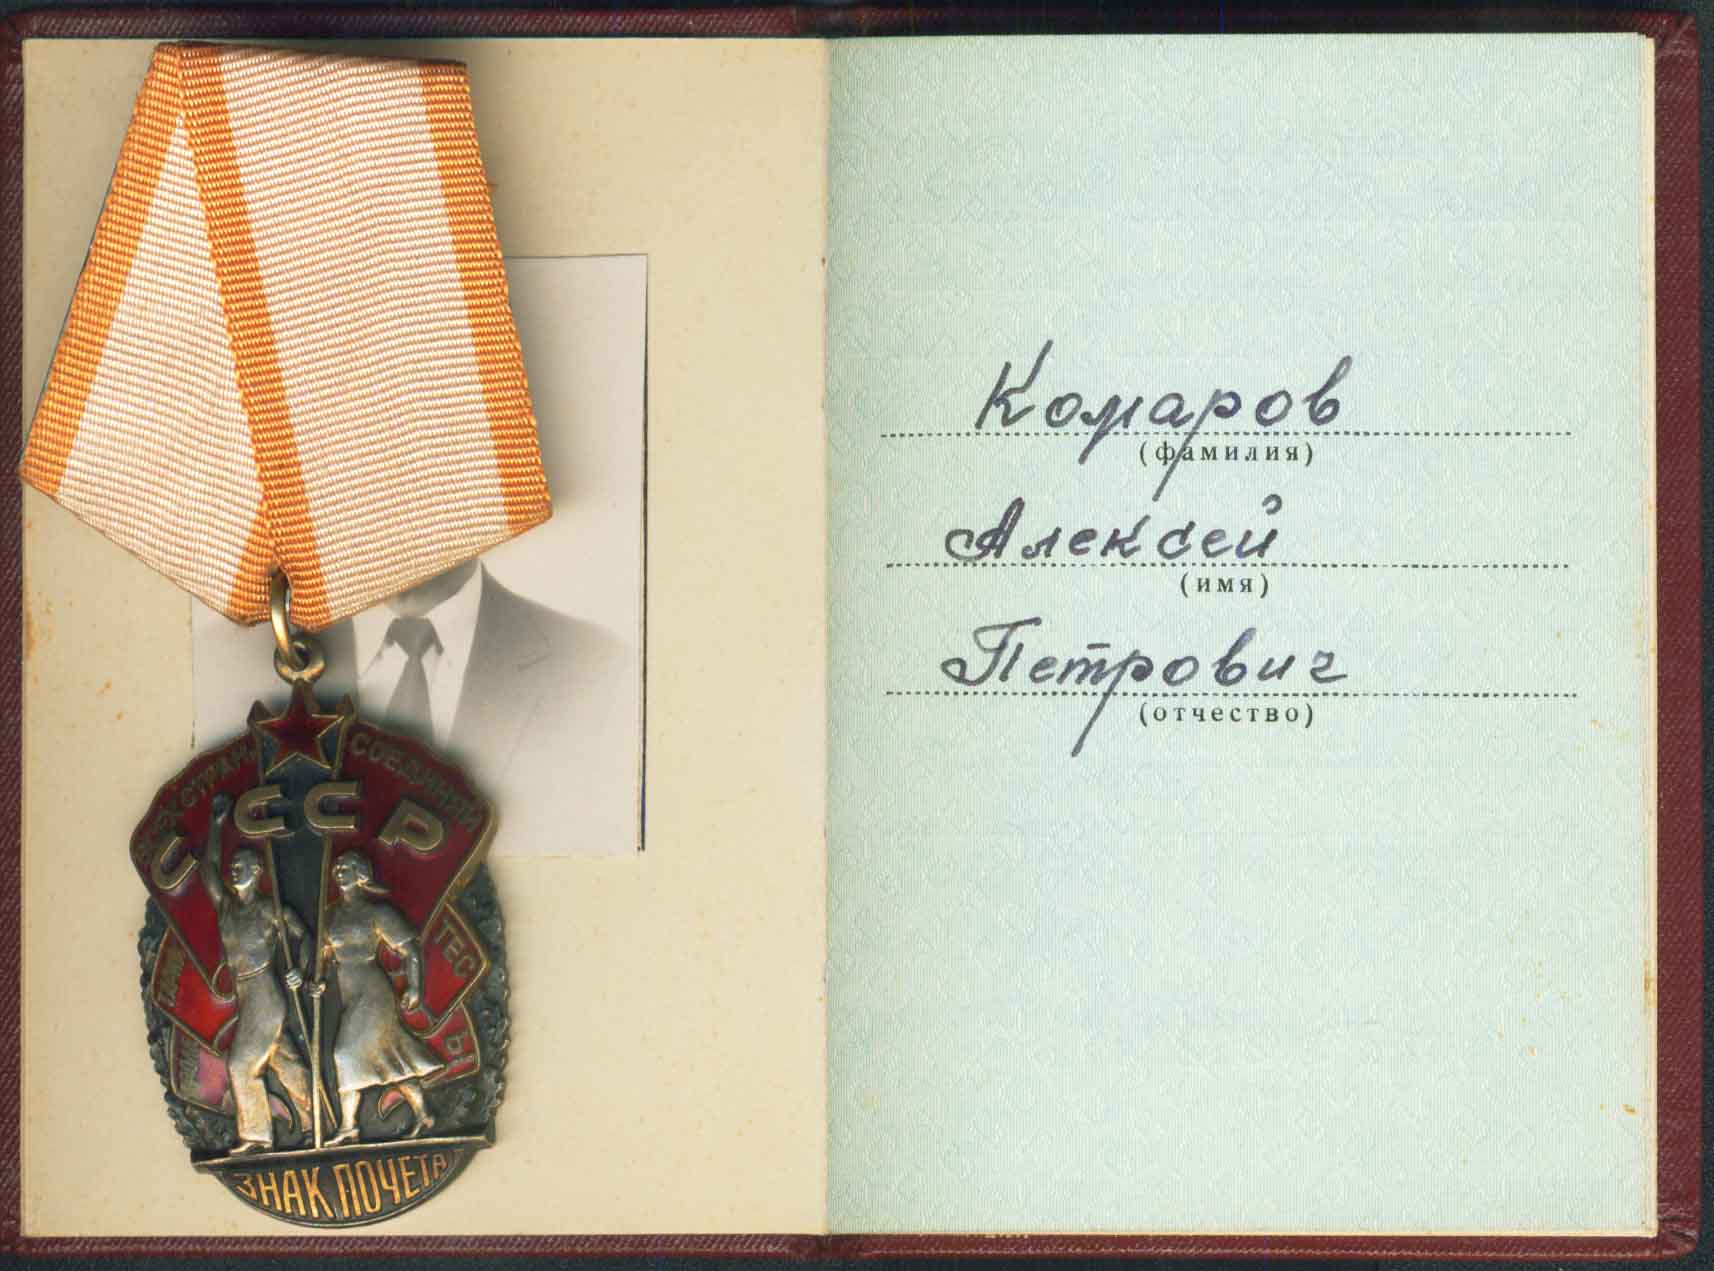 ВСЕХ СТРАН СОЕДИНЯЙ
СССР
ТЕС
Ь!
ЗНАК ПОЧЕТА
Комаров
(фамилия)
Алексей
(имя)
Петрович
(отчество)